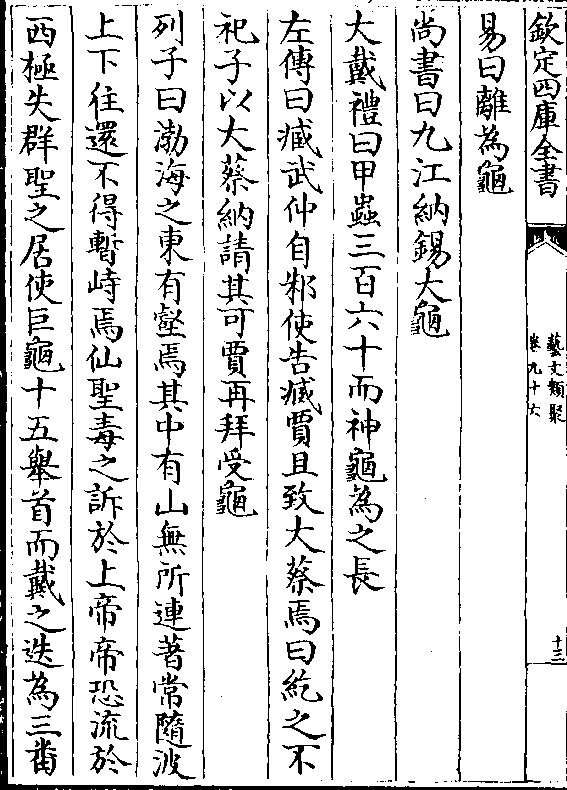 欽定四庫全書
藝文類聚
卷九十六
十三
易曰離為龜
尚書曰九江納錫大龜
大戴禮曰甲蟲三百六十而神龜為之長
左傳曰臧武仲自邾使告臧賈且致大蔡焉曰紇之不
祀子以大蔡納請其可賈再拜受龜
列子曰渤海之東有壑焉其中有山無所連著常隨波
上下往還不得暫峙焉仙聖毒之訴於上帝帝恐流於
西極失群聖之居使巨龜十五舉首而戴之迭為三番